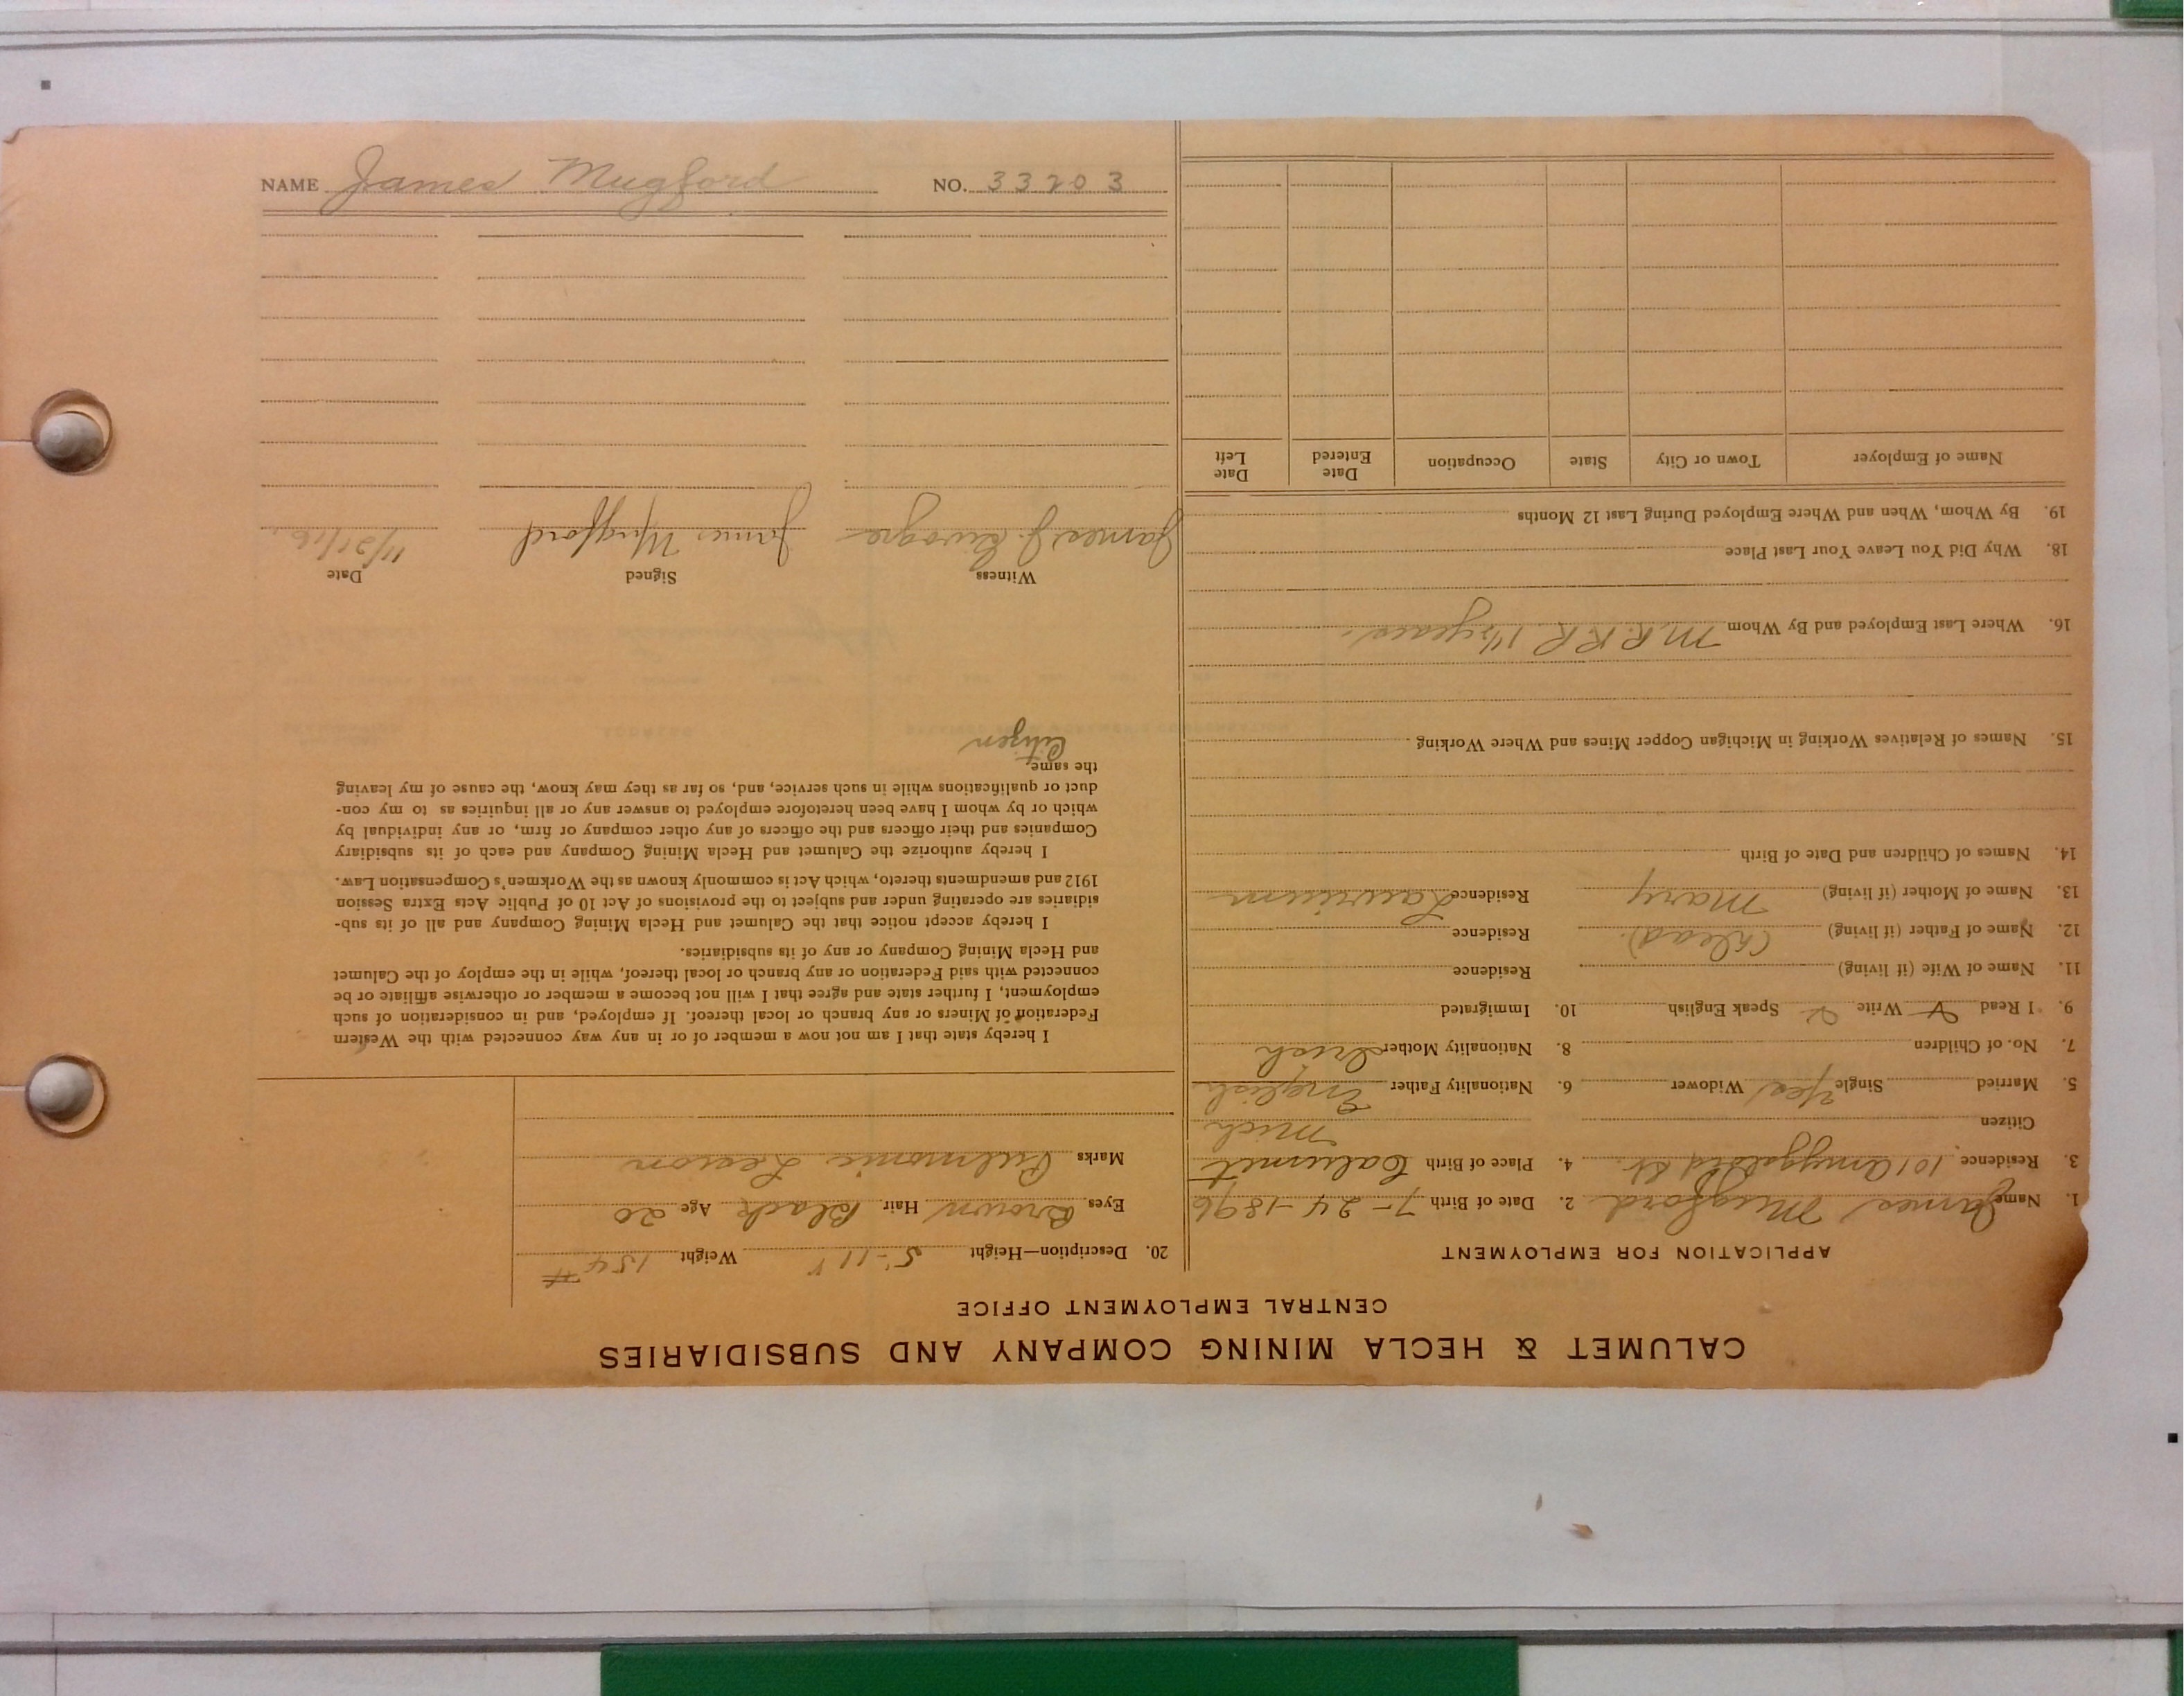 CALUMET & HECLA MINING COMPANY AND SUBSIDIARIES
CENTRAL EMPLOYMENT OFFICE
APPLICATION FOR EMPLOYMENT
1. Name James Mugford 2. Date of Birth 7-24-1896
3. Residence 101 Amygdaloid St. 4. Place of Birth Calumet
Citizen Mich
5. Married Single Yes Widower 6. Nationality Father English
7. No. of Children 8. Nationality Mother Irish
9. I Read Write Speak English 10. Immigrated
11. Name of Wife (if living) Residence
12. Name of Father (if living) (Dead). Residence
13. Name of Mother (if living) Mary Residence Laurium
14. Names of Children and Date of Birth
15. Names of Relatives Working in Michigan Copper Mines and Where Working
16. Where Last Employed and By Whom M.R.R.R. 1½ years.
18. Why Did You Leave Your Last Place
19. By Whom, When and Where Employed During Last 12 Months
Name of Employer Town or City State Occupation Date Entered Date Left
20. Description—Height 5-11 Weight 154 #
Eyes Brown Hair Black Age 20
Marks Pulmonic Lesion
I hereby state that I am not now a member of or in any way connected with the Western
Federation of Miners or any branch or local thereof. If employed, and in consideration of such
employment, I further state and agree that I will not become a member or otherwise affiliate or be
connected with said Federation or any branch or local thereof, while in the employ of the Calumet
and Hecla Mining Company or any of its subsidiaries.
I hereby accept notice that the Calumet and Hecla Mining Company and all of its sub-
sidiaries are operating under and subject to the provisions of Act 10 of Public Acts Extra Session
1912 and amendments thereto, which Act is commonly known as the Workmen's Compensation Law.
I hereby authorize the Calumet and Hecla Mining Company and each of its subsidiary
Companies and their officers and the officers of any other company or firm, or any individual by
which or by whom I have been heretofore employed to answer any or all inquiries as to my con-
duct or qualifications while in such service, and, so far as they may know, the cause of my leaving
the same.
Citizen
Witness Signed Date
James J. James Mugford 11/21/16.
NAME James Mugford NO. 33203